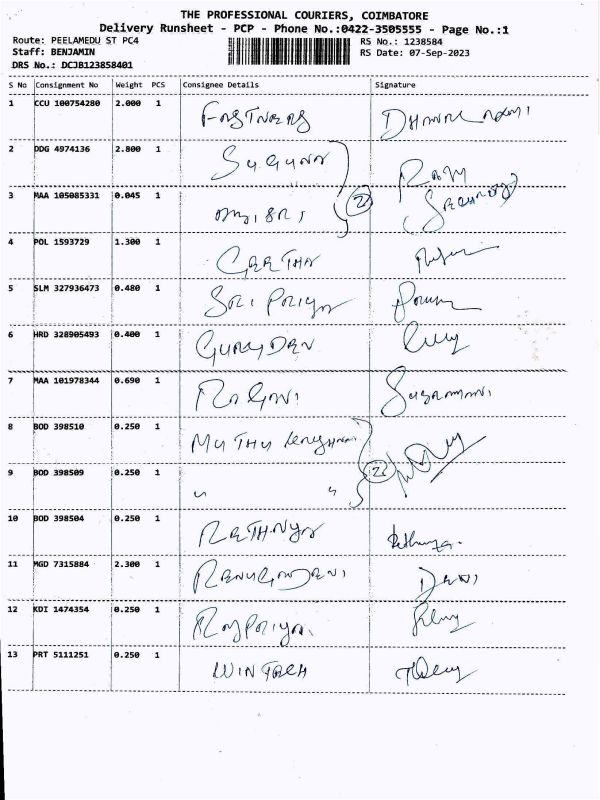 THE PROFESSIONAL COURIERS, COIMBATORE
Delivery Runsheet - PCP - Phone No.:0422-3505555 - Page No.:1
Route: PEELAMEDU ST PC4
RS No.: 1238584
Staff: BENJAMIN
RS Date: 07-Sep-2023
DRS No.: DCJB123858401
S No Consignment No Weight PCS Consignee Details Signature
1 CCU 100754280 2.000 1
2 DDG 4974136 2.800 1 SUGUNA
3 MAA 105085331 0.045 1 2
4 POL 1593729 1.300 1 GEETHA
5 SLM 327936473 0.480 1 SRI PRIYA
6 HRD 328905493 0.400 1 GURUDEV
7 MAA 101978344 0.690 1 RAGAVI
8 BOD 398510 0.250 1 MUTHU
9 BOD 398509 0.250 1 " " 2
10 BOD 398504 0.250 1 RETHNYA
11 MGD 7315884 2.300 1 RENUGADEVI DEVI
12 KDI 1474354 0.250 1 RAJPRIYA
13 PRT 5111251 0.250 1 WINTECH